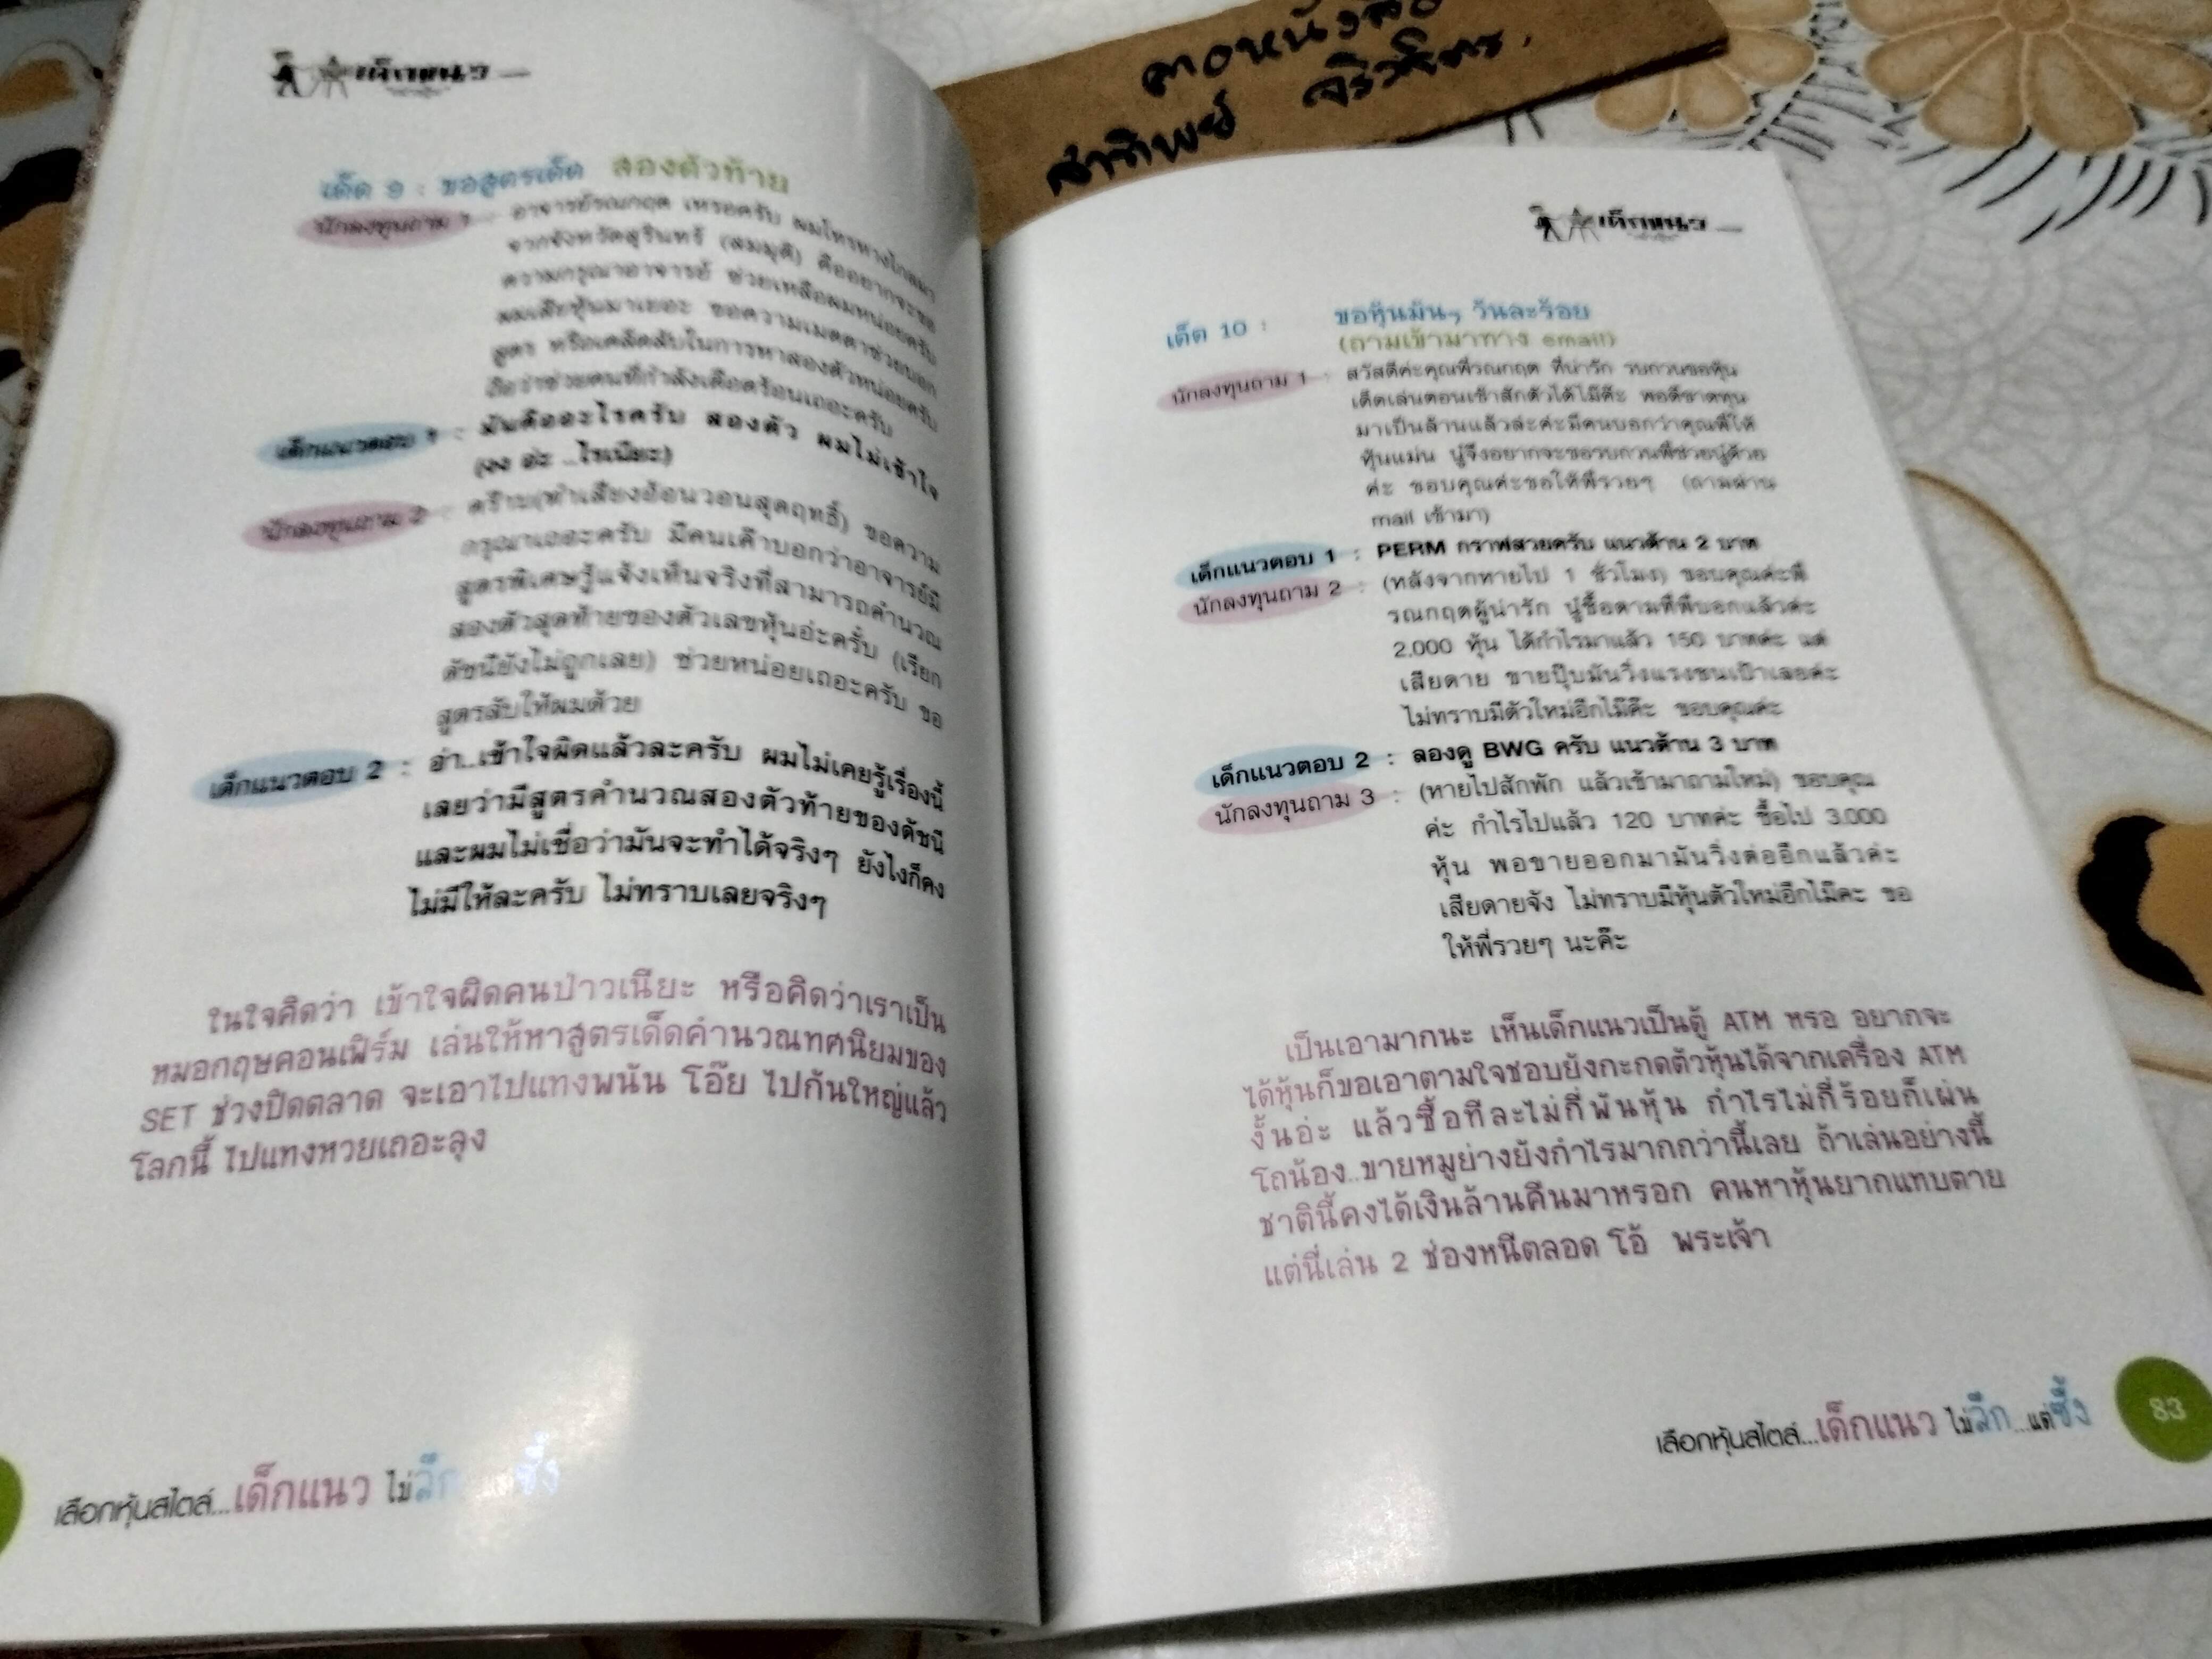 คอหนังสือ
สาธิตพย์ จริวจิตร.
เด็กแนว
เด็ด 9 : ขอสูตรเด็ด สองตัวท้าย
นักลงทุนถาม 1 : อาจารย์รณกฤต เหรอครับ ผมโทรทางไกลมา
จากจังหวัดสุรินทร์ (สมมุติ) คืออยากจะขอ
ความกรุณาอาจารย์ ช่วยเหลือผมหน่อยครับ
ผมเสียหุ้นมาเยอะ ขอความเมตตาช่วยบอก
สูตร หรือเคล็ดลับในการหาสองตัวหน่อยครับ
ถือว่าช่วยคนที่กำลังเดือดร้อนเถอะครับ
เด็กแนวตอบ 1 : มันคืออะไรครับ สองตัว ผมไม่เข้าใจ
(งง อ่ะ ...ไรเนียะ)
นักลงทุนถาม 2 : คร๊าบ(ทำเสียงอ้อนวอนสุดฤทธิ์) ขอความ
กรุณาเถอะครับ มีคนเค้าบอกว่าอาจารย์มี
สูตรพิเศษรู้แจ้งเห็นจริงที่สามารถคำนวณ
สองตัวสุดท้ายของตัวเลขหุ้นอ่ะครับ (เรียก
ดัชนียังไม่ถูกเลย) ช่วยหน่อยเถอะครับ ขอ
สูตรลับให้ผมด้วย
เด็กแนวตอบ 2 : อ๋า...เข้าใจผิดแล้วละครับ ผมไม่เคยรู้เรื่องนี้
เลยว่ามีสูตรคำนวณสองตัวท้ายของดัชนี
และผมไม่เชื่อว่ามันจะทำได้จริงๆ ยังไงก็คง
ไม่มีให้ละครับ ไม่ทราบเลยจริงๆ
ในใจคิดว่า เข้าใจผิดคนป่าวเนียะ หรือคิดว่าเราเป็น
หมอกฤษคอนเฟิร์ม เล่นให้หาสูตรเด็ดคำนวณทศนิยมของ
SET ช่วงปิดตลาด จะเอาไปแทงพนัน โอ๊ย ไปกันใหญ่แล้ว
โลกนี้ ไปแทงหวยเถอะลุง
เลือกหุ้นสไตล์...เด็กแนว ไม่ลึก ซึ้ง
เด็กแนว
เด็ด 10 : ขอหุ้นมันๆ วันละร้อย
(ถามเข้ามาทาง email)
นักลงทุนถาม 1 : สวัสดีค่ะคุณพี่รณกฤต ที่น่ารัก รบกวนขอหุ้น
เด็ดเล่นตอนเช้าสักตัวได้ไม๊คะ พอดีขาดทุน
มาเป็นล้านแล้วล่ะค่ะมีคนบอกว่าคุณพี่ให้
หุ้นแม่น นู๋จึงอยากจะขอรบกวนพี่ช่วยนู๋ด้วย
ค่ะ ขอบคุณค่ะขอให้พี่รวยๆ (ถามผ่าน
mail เข้ามา)
เด็กแนวตอบ 1 : PERM กราฟสวยครับ แนวต้าน 2 บาท
นักลงทุนถาม 2 : (หลังจากหายไป 1 ชั่วโมง) ขอบคุณค่ะพี่
รณกฤตผู้น่ารัก นู๋ซื้อตามที่พี่บอกแล้วค่ะ
2,000 หุ้น ได้กำไรมาแล้ว 150 บาทค่ะ แต่
เสียดาย ขายปุ๊บมันวิ่งแรงชนเป้าเลยค่ะ
ไม่ทราบมีตัวใหม่อีกไม๊คะ ขอบคุณค่ะ
เด็กแนวตอบ 2 : ลองดู BWG ครับ แนวต้าน 3 บาท
นักลงทุนถาม 3 : (หายไปสักพัก แล้วเข้ามาถามใหม่) ขอบคุณ
ค่ะ กำไรไปแล้ว 120 บาทค่ะ ซื้อไป 3,000
หุ้น พอขายออกมามันวิ่งต่ออีกแล้วค่ะ
เสียดายจัง ไม่ทราบมีหุ้นตัวใหม่อีกไม๊คะ ขอ
ให้พี่รวยๆ นะค๊ะ
เป็นเอามากนะ เห็นเด็กแนวเป็นตู้ ATM หรอ อยากจะ
ได้หุ้นก็ขอเอาตามใจชอบยังกะกดตัวหุ้นได้จากเครื่อง ATM
งั้นอ่ะ แล้วซื้อทีละไม่กี่พันหุ้น กำไรไม่กี่ร้อยก็เผ่น
โถน้อง...ขายหมูย่างยังกำไรมากกว่านี้เลย ถ้าเล่นอย่างนี้
ชาตินี้คงได้เงินล้านคืนมาหรอก คนหาหุ้นยากแทบตาย
แต่นี่เล่น 2 ช่องหนีตลอด โอ้ พระเจ้า
เลือกหุ้นสไตล์...เด็กแนว ไม่ลึก...แต่ซึ้ง
83